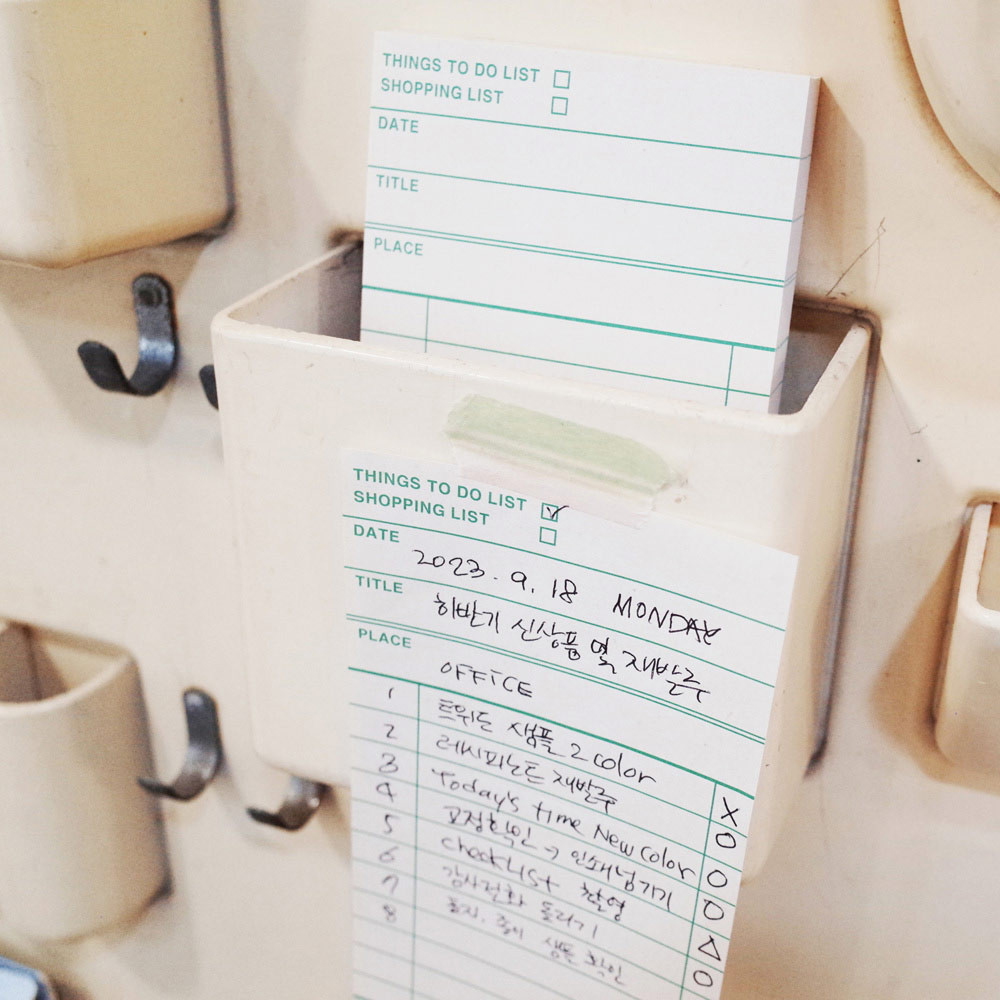 THINGS TO DO LIST
SHOPPING LIST
DATE
TITLE
PLACE
THINGS TO DO LIST
SHOPPING LIST
DATE 2023. 9. 18 MONDAY
TITLE 하반기 신상품 및 재발주
PLACE OFFICE
1 트위드 샘플 2 color X
2 레시피노트 재발주 O
3 Today's time New color O
4 교정확인 → 인쇄넘기기 O
5 checkLIST 촬영 △
6 감사전화 돌리기 O
7 샘플 확인
8